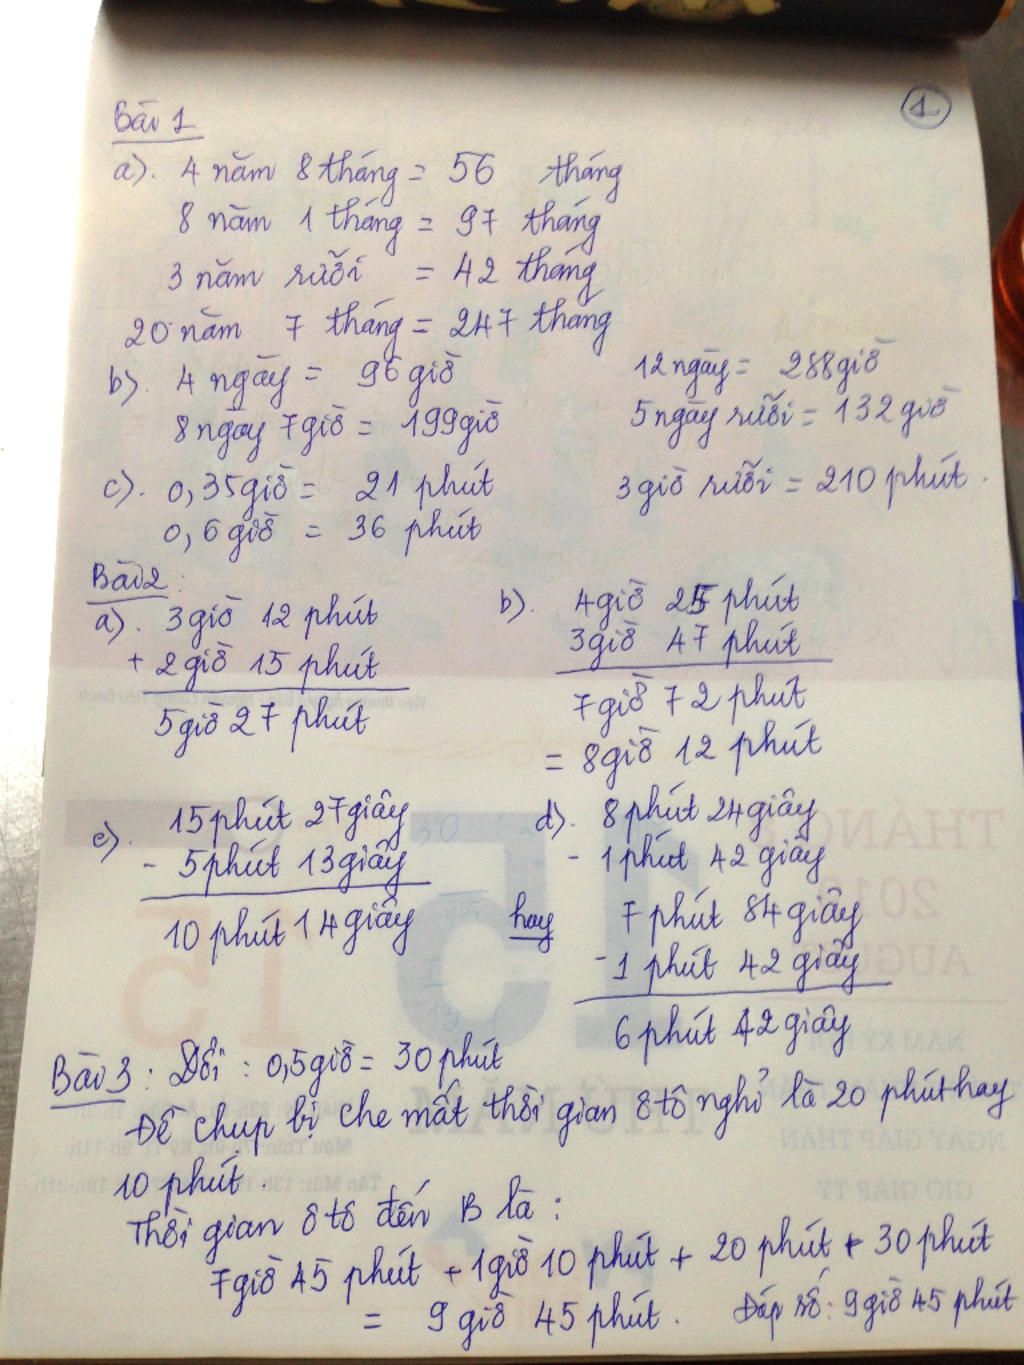 1
Bài 1
a). 4 năm 8 tháng = 56 tháng
8 năm 1 tháng = 97 tháng
3 năm rưỡi = 42 tháng
20 năm 7 tháng = 247 tháng
b). 4 ngày = 96 giờ 12 ngày = 288 giờ
8 ngày 7 giờ = 199 giờ 5 ngày rưỡi = 132 giờ
c). 0,35 giờ = 21 phút 3 giờ rưỡi = 210 phút.
0,6 giờ = 36 phút
Bài 2:
a). 3 giờ 12 phút b). 4 giờ 25 phút
+ 2 giờ 15 phút 3 giờ 47 phút
5 giờ 27 phút 7 giờ 72 phút
= 8 giờ 12 phút
c). 15 phút 27 giây d). 8 phút 24 giây
- 5 phút 13 giây - 1 phút 42 giây
10 phút 14 giây hay 7 phút 84 giây
- 1 phút 42 giây
6 phút 42 giây
Bài 3: Đổi: 0,5 giờ = 30 phút
Đề chụp bị che mất thời gian ô tô nghỉ là 20 phút hay
10 phút.
Thời gian ô tô đến B là:
7 giờ 45 phút + 1 giờ 10 phút + 20 phút + 30 phút
= 9 giờ 45 phút. Đáp số: 9 giờ 45 phút